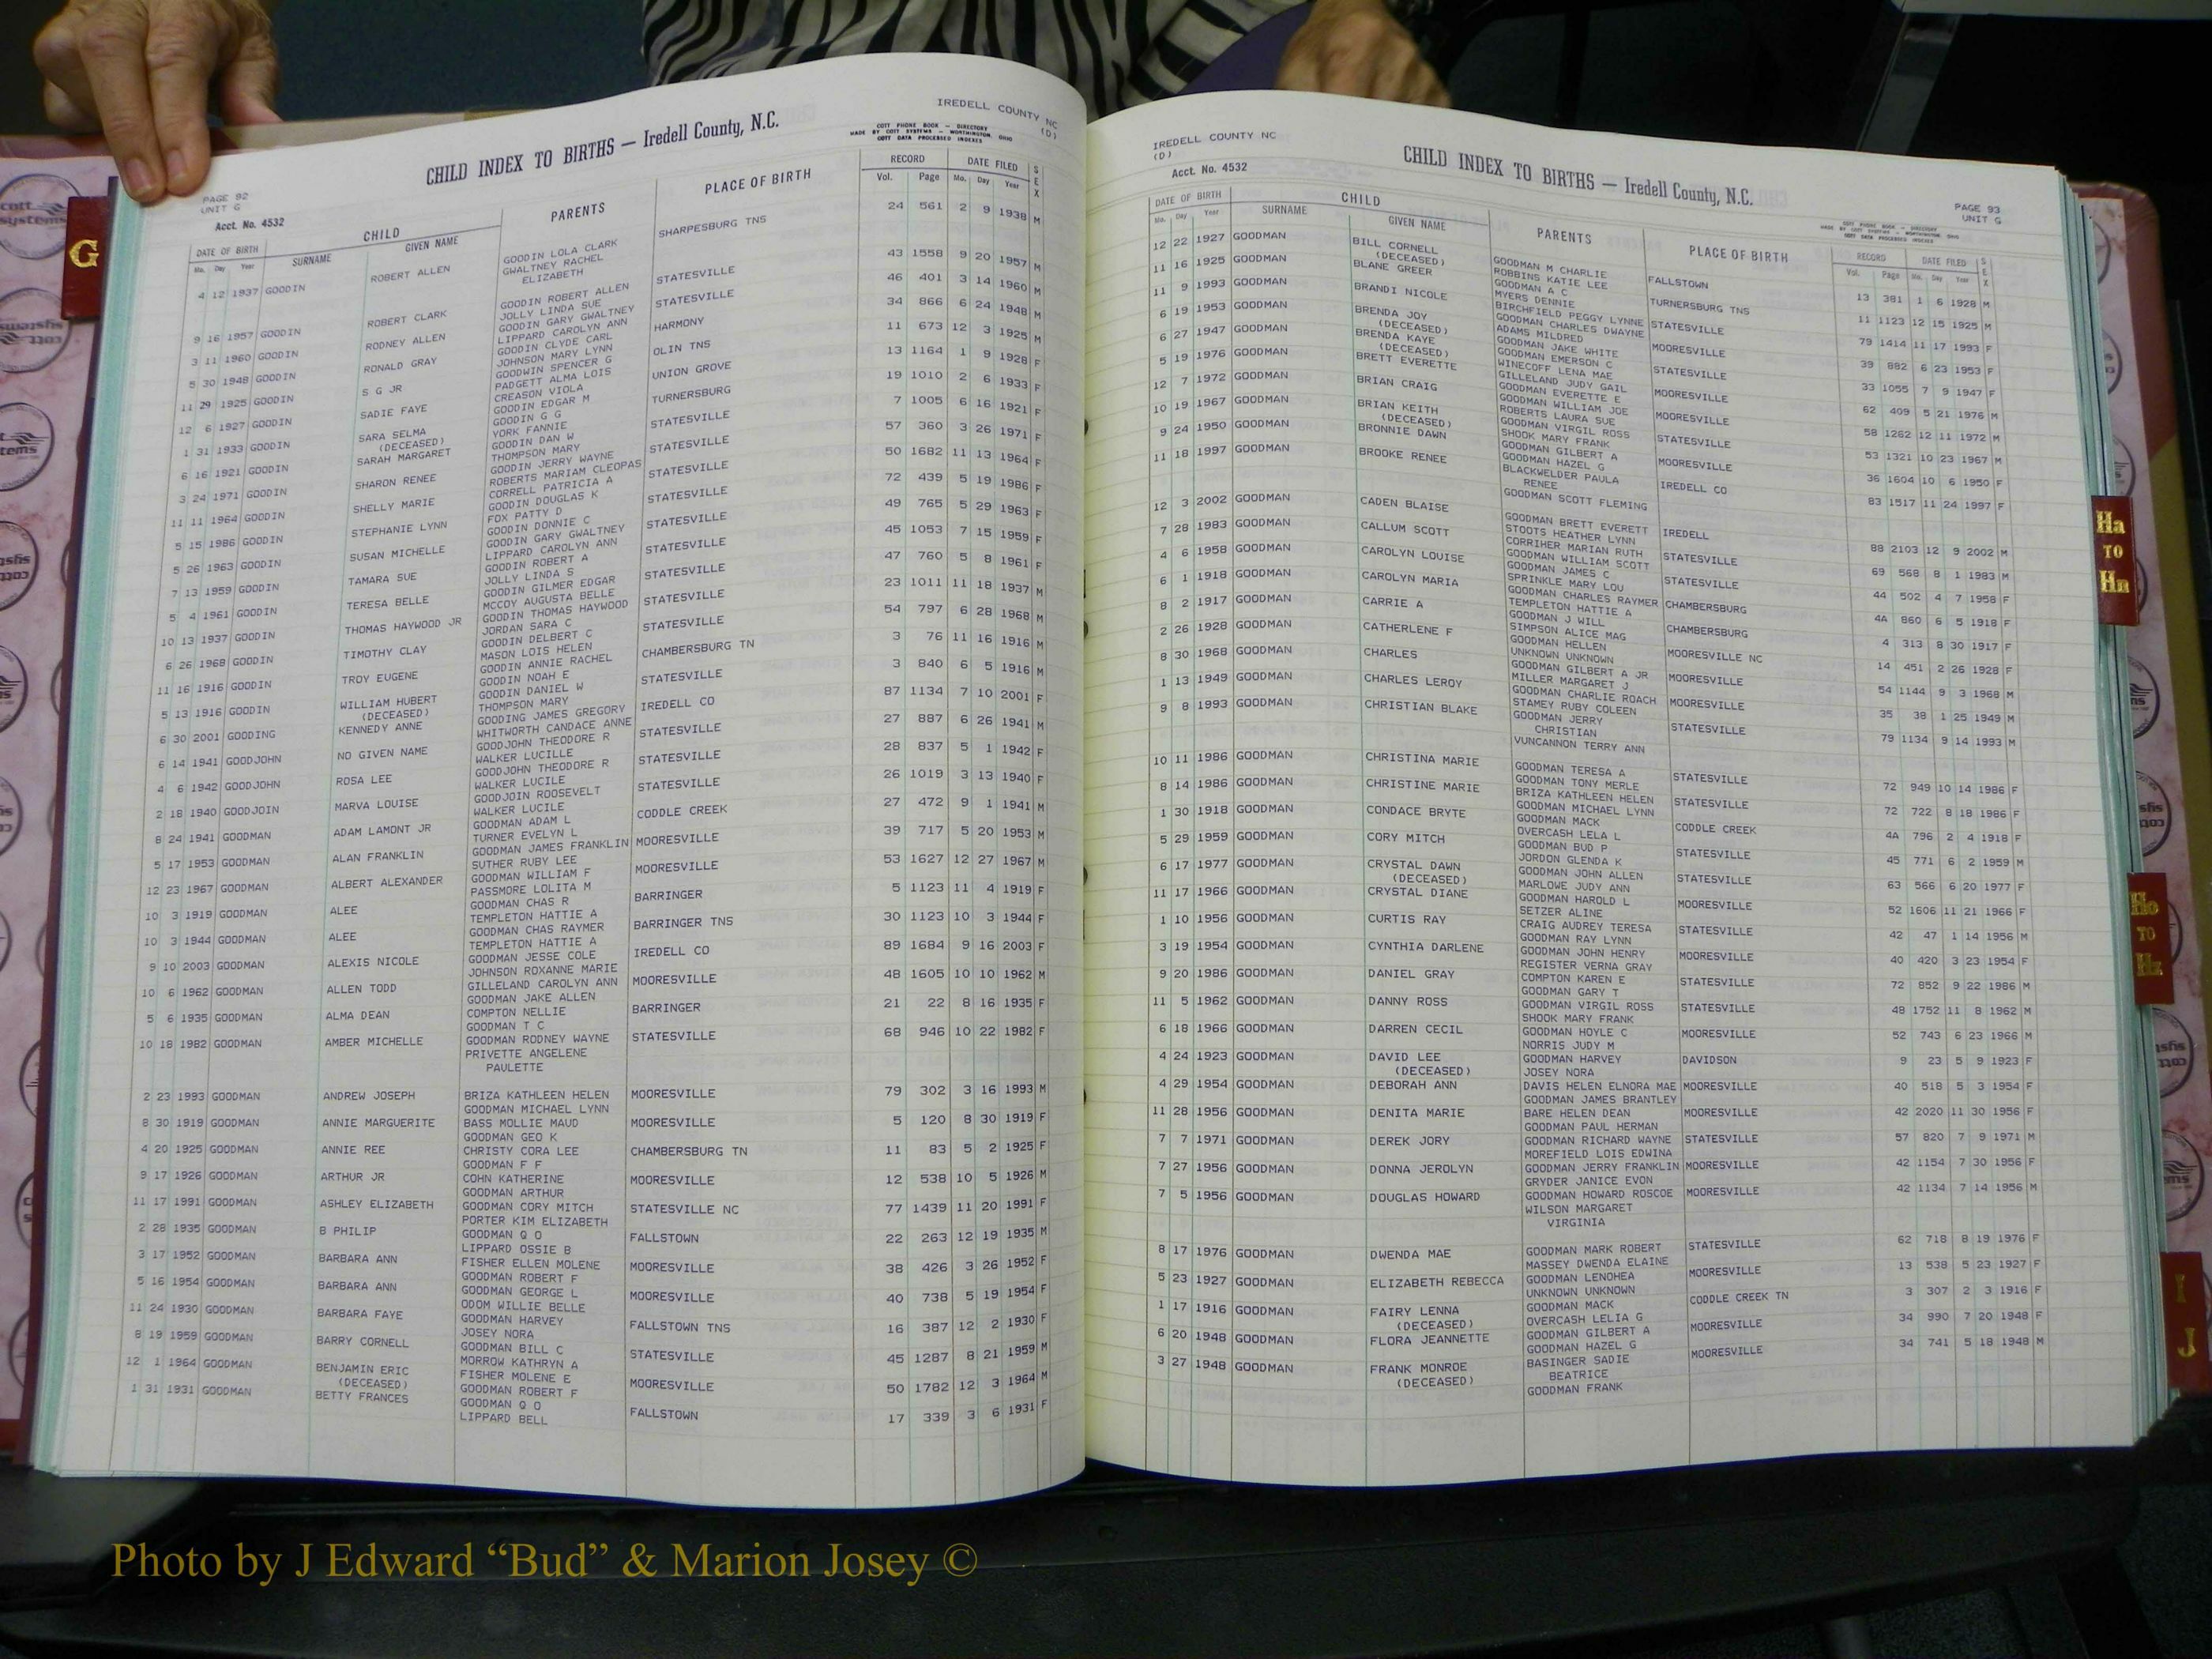 IREDELL COUNTY NC
(D)
CHILD INDEX TO BIRTHS — Iredell County, N.C.
COTT PHONE BOOK — DIRECTORY
MADE BY COTT SYSTEMS — WORTHINGTON, OHIO
COTT DATA PROCESSED INDEXES
PAGE 92
UNIT G
Acct. No. 4532
DATE OF BIRTH CHILD PARENTS PLACE OF BIRTH RECORD DATE FILED SEX
Mo. Day Year SURNAME GIVEN NAME Vol. Page Mo. Day Year
4 12 1937 GOODIN ROBERT ALLEN GOODIN LOLA CLARK SHARPESBURG TNS 24 561 2 9 1938 M
GWALTNEY RACHEL
ELIZABETH
9 16 1957 GOODIN ROBERT CLARK GOODIN ROBERT ALLEN STATESVILLE 43 1558 9 20 1957 M
JOLLY LINDA SUE
3 11 1960 GOODIN RODNEY ALLEN GOODIN GARY GWALTNEY STATESVILLE 46 401 3 14 1960 M
LIPPARD CAROLYN ANN
5 30 1948 GOODIN RONALD GRAY GOODIN CLYDE CARL HARMONY 34 866 6 24 1948 M
JOHNSON MARY LYNN
11 29 1925 GOODIN S G JR GOODWIN SPENCER G OLIN TNS 11 673 12 3 1925 M
PADGETT ALMA LOIS
12 6 1927 GOODIN SADIE FAYE CREASON VIOLA UNION GROVE 13 1164 1 9 1928 F
GOODIN EDGAR M
1 31 1933 GOODIN SARA SELMA GOODIN G G TURNERSBURG 19 1010 2 6 1933 F
(DECEASED) YORK FANNIE
6 16 1921 GOODIN SARAH MARGARET GOODIN DAN W STATESVILLE 7 1005 6 16 1921 F
THOMPSON MARY
3 24 1971 GOODIN SHARON RENEE GOODIN JERRY WAYNE STATESVILLE 57 360 3 26 1971 F
ROBERTS MARIAM CLEOPAS
11 11 1964 GOODIN SHELLY MARIE CORRELL PATRICIA A STATESVILLE 50 1682 11 13 1964 F
GOODIN DOUGLAS K
5 15 1986 GOODIN STEPHANIE LYNN FOX PATTY D STATESVILLE 72 439 5 19 1986 F
GOODIN DONNIE C
5 26 1963 GOODIN SUSAN MICHELLE GOODIN GARY GWALTNEY STATESVILLE 49 765 5 29 1963 F
LIPPARD CAROLYN ANN
7 13 1959 GOODIN TAMARA SUE GOODIN ROBERT A STATESVILLE 45 1053 7 15 1959 F
JOLLY LINDA S
5 4 1961 GOODIN TERESA BELLE GOODIN GILMER EDGAR STATESVILLE 47 760 5 8 1961 F
MCCOY AUGUSTA BELLE
10 13 1937 GOODIN THOMAS HAYWOOD JR GOODIN THOMAS HAYWOOD STATESVILLE 23 1011 11 18 1937 M
JORDAN SARA C
6 26 1968 GOODIN TIMOTHY CLAY GOODIN DELBERT C STATESVILLE 54 797 6 28 1968 M
MASON LOIS HELEN
11 16 1916 GOODIN TROY EUGENE GOODIN ANNIE RACHEL CHAMBERSBURG TN 3 76 11 16 1916 M
GOODIN NOAH E
5 13 1916 GOODIN WILLIAM HUBERT GOODIN DANIEL W STATESVILLE 3 840 6 5 1916 M
(DECEASED) THOMPSON MARY
6 30 2001 GOODING KENNEDY ANNE GOODING JAMES GREGORY IREDELL CO 87 1134 7 10 2001 F
WHITWORTH CANDACE ANNE
6 14 1941 GOODJOHN NO GIVEN NAME GOODJOHN THEODORE R STATESVILLE 27 887 6 26 1941 M
WALKER LUCILLE
4 6 1942 GOODJOHN ROSA LEE GOODJOHN THEODORE R STATESVILLE 28 837 5 1 1942 F
WALKER LUCILE
2 18 1940 GOODJOIN MARVA LOUISE GOODJOIN ROOSEVELT STATESVILLE 26 1019 3 13 1940 F
WALKER LUCILE
8 24 1941 GOODMAN ADAM LAMONT JR GOODMAN ADAM L CODDLE CREEK 27 472 9 1 1941 M
TURNER EVELYN L
5 17 1953 GOODMAN ALAN FRANKLIN GOODMAN JAMES FRANKLIN MOORESVILLE 39 717 5 20 1953 M
SUTHER RUBY LEE
12 23 1967 GOODMAN ALBERT ALEXANDER GOODMAN WILLIAM F MOORESVILLE 53 1627 12 27 1967 M
PASSMORE LOLITA M
10 3 1919 GOODMAN ALEE GOODMAN CHAS R BARRINGER 5 1123 11 4 1919 F
TEMPLETON HATTIE A
10 3 1944 GOODMAN ALEE GOODMAN CHAS RAYMER BARRINGER TNS 30 1123 10 3 1944 F
TEMPLETON HATTIE A
9 10 2003 GOODMAN ALEXIS NICOLE GOODMAN JESSE COLE IREDELL CO 89 1684 9 16 2003 F
JOHNSON ROXANNE MARIE
10 6 1962 GOODMAN ALLEN TODD GILLELAND CAROLYN ANN MOORESVILLE 48 1605 10 10 1962 M
GOODMAN JAKE ALLEN
5 6 1935 GOODMAN ALMA DEAN COMPTON NELLIE BARRINGER 21 22 8 16 1935 F
GOODMAN T C
10 18 1982 GOODMAN AMBER MICHELLE GOODMAN RODNEY WAYNE STATESVILLE 68 946 10 22 1982 F
PRIVETTE ANGELENE
PAULETTE
2 23 1993 GOODMAN ANDREW JOSEPH BRIZA KATHLEEN HELEN MOORESVILLE 79 302 3 16 1993 M
GOODMAN MICHAEL LYNN
8 30 1919 GOODMAN ANNIE MARGUERITE BASS MOLLIE MAUD MOORESVILLE 5 120 8 30 1919 F
GOODMAN GEO K
4 20 1925 GOODMAN ANNIE REE CHRISTY CORA LEE CHAMBERSBURG TN 11 83 5 2 1925 F
GOODMAN F F
9 17 1926 GOODMAN ARTHUR JR COHN KATHERINE MOORESVILLE 12 538 10 5 1926 M
GOODMAN ARTHUR
11 17 1991 GOODMAN ASHLEY ELIZABETH GOODMAN CORY MITCH STATESVILLE NC 77 1439 11 20 1991 F
PORTER KIM ELIZABETH
2 28 1935 GOODMAN B PHILIP GOODMAN Q O FALLSTOWN 22 263 12 19 1935 M
LIPPARD OSSIE B
3 17 1952 GOODMAN BARBARA ANN FISHER ELLEN MOLENE MOORESVILLE 38 426 3 26 1952 F
GOODMAN ROBERT F
5 16 1954 GOODMAN BARBARA ANN GOODMAN GEORGE L MOORESVILLE 40 738 5 19 1954 F
ODOM WILLIE BELLE
11 24 1930 GOODMAN BARBARA FAYE GOODMAN HARVEY FALLSTOWN TNS 16 387 12 2 1930 F
JOSEY NORA
8 19 1959 GOODMAN BARRY CORNELL GOODMAN BILL C STATESVILLE 45 1287 8 21 1959 M
MORROW KATHRYN A
12 1 1964 GOODMAN BENJAMIN ERIC FISHER MOLENE E MOORESVILLE 50 1782 12 3 1964 M
(DECEASED) GOODMAN ROBERT F
1 31 1931 GOODMAN BETTY FRANCES GOODMAN Q O FALLSTOWN 17 339 3 6 1931 F
LIPPARD BELL
IREDELL COUNTY NC
(D)
Acct. No. 4532
CHILD INDEX TO BIRTHS — Iredell County, N.C.
PAGE 93
UNIT G
DATE OF BIRTH CHILD PARENTS PLACE OF BIRTH RECORD DATE FILED SEX
Mo. Day Year SURNAME GIVEN NAME Vol. Page Mo. Day Year
12 22 1927 GOODMAN BILL CORNELL GOODMAN M CHARLIE FALLSTOWN 13 381 1 6 1928 M
(DECEASED) ROBBINS KATIE LEE
11 16 1925 GOODMAN BLANE GREER GOODMAN A C TURNERSBURG TNS 11 1123 12 15 1925 M
MYERS DENNIE
11 9 1993 GOODMAN BRANDI NICOLE BIRCHFIELD PEGGY LYNNE STATESVILLE 79 1414 11 17 1993 F
GOODMAN CHARLES DWAYNE
6 19 1953 GOODMAN BRENDA JOY ADAMS MILDRED MOORESVILLE 39 882 6 23 1953 F
(DECEASED) GOODMAN JAKE WHITE
6 27 1947 GOODMAN BRENDA KAYE GOODMAN EMERSON C STATESVILLE 33 1055 7 9 1947 F
(DECEASED) WINECOFF LENA MAE
5 19 1976 GOODMAN BRETT EVERETTE GILLELAND JUDY GAIL MOORESVILLE 62 409 5 21 1976 M
GOODMAN EVERETTE E
12 7 1972 GOODMAN BRIAN CRAIG GOODMAN WILLIAM JOE MOORESVILLE 58 1262 12 11 1972 M
ROBERTS LAURA SUE
10 19 1967 GOODMAN BRIAN KEITH GOODMAN VIRGIL ROSS STATESVILLE 53 1321 10 23 1967 M
(DECEASED) SHOOK MARY FRANK
9 24 1950 GOODMAN BRONNIE DAWN GOODMAN GILBERT A MOORESVILLE 36 1604 10 6 1950 F
GOODMAN HAZEL G
11 18 1997 GOODMAN BROOKE RENEE BLACKWELDER PAULA IREDELL CO 83 1517 11 24 1997 F
RENEE
GOODMAN SCOTT FLEMING
12 3 2002 GOODMAN CADEN BLAISE GOODMAN BRETT EVERETT IREDELL 88 2103 12 9 2002 M
STOOTS HEATHER LYNN
7 28 1983 GOODMAN CALLUM SCOTT CORRIHER MARIAN RUTH STATESVILLE 69 568 8 1 1983 M
GOODMAN WILLIAM SCOTT
4 6 1958 GOODMAN CAROLYN LOUISE GOODMAN JAMES C STATESVILLE 44 502 4 7 1958 F
SPRINKLE MARY LOU
6 1 1918 GOODMAN CAROLYN MARIA GOODMAN CHARLES RAYMER CHAMBERSBURG 4A 860 6 5 1918 F
TEMPLETON HATTIE A
8 2 1917 GOODMAN CARRIE A GOODMAN J WILL CHAMBERSBURG 4 313 8 30 1917 F
SIMPSON ALICE MAG
2 26 1928 GOODMAN CATHERLENE F GOODMAN HELLEN MOORESVILLE NC 14 451 2 26 1928 F
UNKNOWN UNKNOWN
8 30 1968 GOODMAN CHARLES GOODMAN GILBERT A JR MOORESVILLE 54 1144 9 3 1968 M
MILLER MARGARET J
1 13 1949 GOODMAN CHARLES LEROY GOODMAN CHARLIE ROACH MOORESVILLE 35 38 1 25 1949 M
STAMEY RUBY COLEEN
9 8 1993 GOODMAN CHRISTIAN BLAKE GOODMAN JERRY STATESVILLE 79 1134 9 14 1993 M
CHRISTIAN
VUNCANNON TERRY ANN
10 11 1986 GOODMAN CHRISTINA MARIE GOODMAN TERESA A STATESVILLE 72 949 10 14 1986 F
GOODMAN TONY MERLE
8 14 1986 GOODMAN CHRISTINE MARIE BRIZA KATHLEEN HELEN STATESVILLE 72 722 8 18 1986 F
GOODMAN MICHAEL LYNN
1 30 1918 GOODMAN CONDACE BRYTE GOODMAN MACK CODDLE CREEK 4A 796 2 4 1918 F
OVERCASH LELA L
5 29 1959 GOODMAN CORY MITCH GOODMAN BUD P STATESVILLE 45 771 6 2 1959 M
JORDON GLENDA K
6 17 1977 GOODMAN CRYSTAL DAWN GOODMAN JOHN ALLEN STATESVILLE 63 566 6 20 1977 F
(DECEASED) MARLOWE JUDY ANN
11 17 1966 GOODMAN CRYSTAL DIANE GOODMAN HAROLD L MOORESVILLE 52 1606 11 21 1966 F
SETZER ALINE
1 10 1956 GOODMAN CURTIS RAY CRAIG AUDREY TERESA STATESVILLE 42 47 1 14 1956 M
GOODMAN RAY LYNN
3 19 1954 GOODMAN CYNTHIA DARLENE GOODMAN JOHN HENRY MOORESVILLE 40 420 3 23 1954 F
REGISTER VERNA GRAY
9 20 1986 GOODMAN DANIEL GRAY COMPTON KAREN E STATESVILLE 72 852 9 22 1986 M
GOODMAN GARY T
11 5 1962 GOODMAN DANNY ROSS GOODMAN VIRGIL ROSS STATESVILLE 48 1752 11 8 1962 M
SHOOK MARY FRANK
6 18 1966 GOODMAN DARREN CECIL GOODMAN HOYLE C MOORESVILLE 52 743 6 23 1966 M
NORRIS JUDY M
4 24 1923 GOODMAN DAVID LEE GOODMAN HARVEY DAVIDSON 9 23 5 9 1923 F
(DECEASED) JOSEY NORA
4 29 1954 GOODMAN DEBORAH ANN DAVIS HELEN ELNORA MAE MOORESVILLE 40 518 5 3 1954 F
GOODMAN JAMES BRANTLEY
11 28 1956 GOODMAN DENITA MARIE BARE HELEN DEAN MOORESVILLE 42 2020 11 30 1956 F
GOODMAN PAUL HERMAN
7 7 1971 GOODMAN DEREK JORY GOODMAN RICHARD WAYNE STATESVILLE 57 820 7 9 1971 M
MOREFIELD LOIS EDWINA
7 27 1956 GOODMAN DONNA JEROLYN GOODMAN JERRY FRANKLIN MOORESVILLE 42 1154 7 30 1956 F
GRYDER JANICE EVON
7 5 1956 GOODMAN DOUGLAS HOWARD GOODMAN HOWARD ROSCOE MOORESVILLE 42 1134 7 14 1956 M
WILSON MARGARET
VIRGINIA
8 17 1976 GOODMAN DWENDA MAE GOODMAN MARK ROBERT STATESVILLE 62 718 8 19 1976 F
MASSEY DWENDA ELAINE
5 23 1927 GOODMAN ELIZABETH REBECCA GOODMAN LENOHEA MOORESVILLE 13 538 5 23 1927 F
UNKNOWN UNKNOWN
1 17 1916 GOODMAN FAIRY LENNA GOODMAN MACK CODDLE CREEK TN 3 307 2 3 1916 F
(DECEASED) OVERCASH LELIA G
6 20 1948 GOODMAN FLORA JEANNETTE GOODMAN GILBERT A MOORESVILLE 34 990 7 20 1948 F
GOODMAN HAZEL G
3 27 1948 GOODMAN FRANK MONROE BASINGER SADIE MOORESVILLE 34 741 5 18 1948 M
(DECEASED) BEATRICE
GOODMAN FRANK
G
Ha
TO
Hn
Ho
TO
Hz
I
J
cott
systems
Photo by J Edward “Bud” & Marion Josey ©